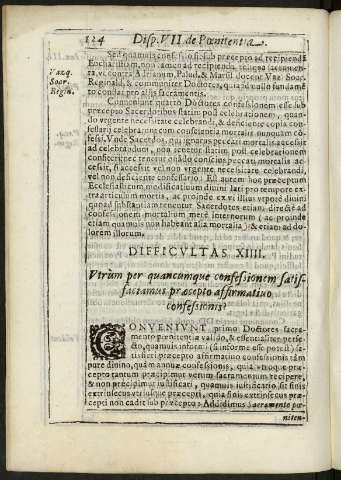 124 Disp. VII. de Pœnitentia.
Sed quamuis confessio sit sub præcepto ad recipiendã
Eucharistiam, non tamen ad recipienda reliqua sacramen-
ta, vt contra Adrianum, Palud. & Marsil. docent Vaz. Soar.
Vazq.
Soar.
Regin.
Reginald. & communiter Doctores, quia nullo fundamẽ-
to constat pro aliis sacramentis.
Conueniunt quarto Doctores confessionem esse sub
præcepto Sacerdotibus statim post celebrationem, quando
vrgente necessitate celebrandi, & deficiente copia con-
fessarij celebrarunt cum conscientia mortalis nunquam cõ-
fessi. Vnde Sacerdos, qui ignarus peccati mortalis accessit
ad celebrandum, non tenetur statim post celebrationem
confiteri; nec tenetur quãdo conscius peccati mortalis ac-
cessit, si accessit vel non vrgente necessitate celebrandi,
vel non deficiente confessario. Est autem hoc præceptum
Ecclesiasticum modificatiuum diuini lati pro tempore ex-
tra articulum mortis, ac proinde ex vi illius vtpote diuini
quoad substantiam tenentur Sacerdotes etiam directè ad
confessionem mortalium merè internorum (ac proinde
etiam quamuis non habeant alia mortalia) & etiam ad do-
lorem illorum.
DIFFICVLTAS XIIII.
Vtrum per quancumque confessionem satis-
faciamus præcepto affirmatiuo
confessionis?
CONVENIVNT primo Doctores sacra-
mento pœnitentiæ valido, & essentialiter perfe-
cto, quamuis informi (si informe esse potest) sa-
tisfieri præcepto affirmatiuo confessionis tàm
pure diuino, quàm annuæ confessionis, quia vtroque præ-
cepto tantum præcipimur verum sacramentum recipere,
& non præcipimur iustificari, quamuis iustificatio sit finis
extrinsecus vtriusque præcepti, quia finis extrinsecus præ-
cepti non cadit sub præcepto. Addidimus (sacramento pœ-
niten-